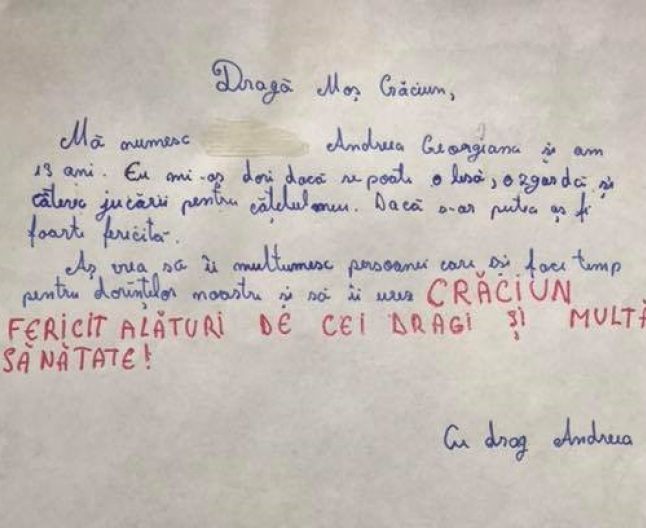 Dragă Moș Crăciun,
Mă numesc Andreea Georgiana și am
13 ani. Eu mi-aș dori dacă se poate o lesă, o zgardă și
câteva jucării pentru cățelul meu. Dacă s-ar putea aș fi
foarte fericită.
Aș vrea să îi multumesc persoanei care își face timp
pentru dorințelor noastre și să îi urez CRĂCIUN
FERICIT ALĂTURI DE CEI DRAGI ȘI MULTĂ
SĂNĂTATE!
Cu drag Andreea